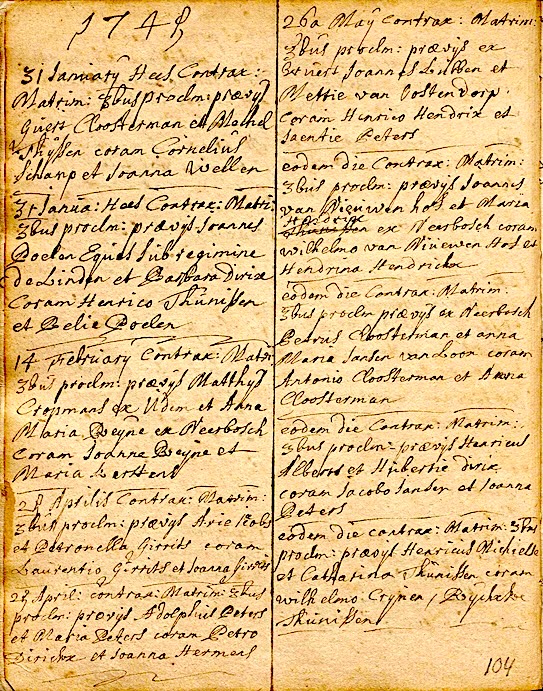 1741
31 January Hees Contrax:
Matrim: 3bus proclm: prævÿs
Guert Cloosterman et Mechel
Thÿssen coram Cornelius
Schamp et Joanna Wellen
31 Janua: Hees Contrax: Matri:
3bus proclm: prævÿs Joannes
Poelen Eques sub regimine
de Linden et Barbara Dirix
Coram Henrico Thünissen
et Belie Poelen
14 February Contrax: Matri
3bus proclm: prævÿs Matthÿs
Cropmans ex Uden et Anna
Maria Peÿne ex Neerbosch
Coram Joanne Peÿne et
Maria
Aprilis Contrax: Matrim:
3bus proclm: prævÿs Arie
et Petronella Girrits coram
Laurentio Girrits et Joanna
April: contrax: Matrim: 3bus
proclm: prævÿs Adolphus Peters
et Maria Peters coram Petro
Dirickx et Joanna Hermens
26a Maÿ Contrax: Matrim:
3bus proclm: prævÿs ex
Joannes Lubben et
Mettie van Oostendorp
coram Henrico Hendrix et
Jaentie Peters
eodem die Contrax: Matrim:
3bus proclm: prævÿs Joannes
van Nieuwen hof et Maria
Hendrix
ex Neerbosch coram
wilhelmo van Nieuwen Hof et
Hendrina Hendrickx
eodem die Contrax: Matrim:
3bus proclm prævÿs ex Neerbosch
Petrus Cloosterman et anna
Maria Jansen van Loon coram
Antonio Cloosterman et Anna
Cloosterman
eodem die Contrax: Matrim:
3bus proclm: prævÿs Henricus
Alberts et Hubertie Dirix
coram Jacobo Jansen et Joanna
Peters
eodem die contrax: Matrim: 3bus
proclm: prævÿs Henricus Michiels
et Catharina Thünissen coram
wilhelmo Crÿnen /
Thunissen
104